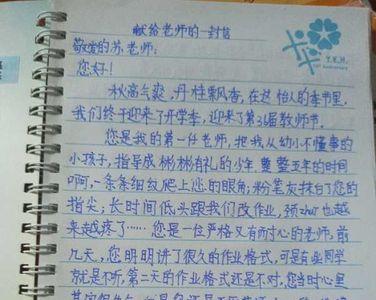 献给老师的一封信
敬爱的苏老师:
您好!
秋高气爽,丹桂飘香,在这怡人的季节里,
我们终于迎来了开学季,迎来了第36届教师节。
您是我的第一任老师,把我从幼小不懂事的
小孩子,指导成彬彬有礼的少年,整整五年的时间
啊,一条条细纹爬上您的眼角;粉笔灰抹白了您的
指尖;长时间低头跟我们改作业,颈zhui也越
来越疼了……您是一位严格又有耐心的老师,前
几天,您明明讲了很久的作业格式,可是有些同学
就是不听,第二天的作业格式还是不对,您当时心里
T.K.H.
Anniversary